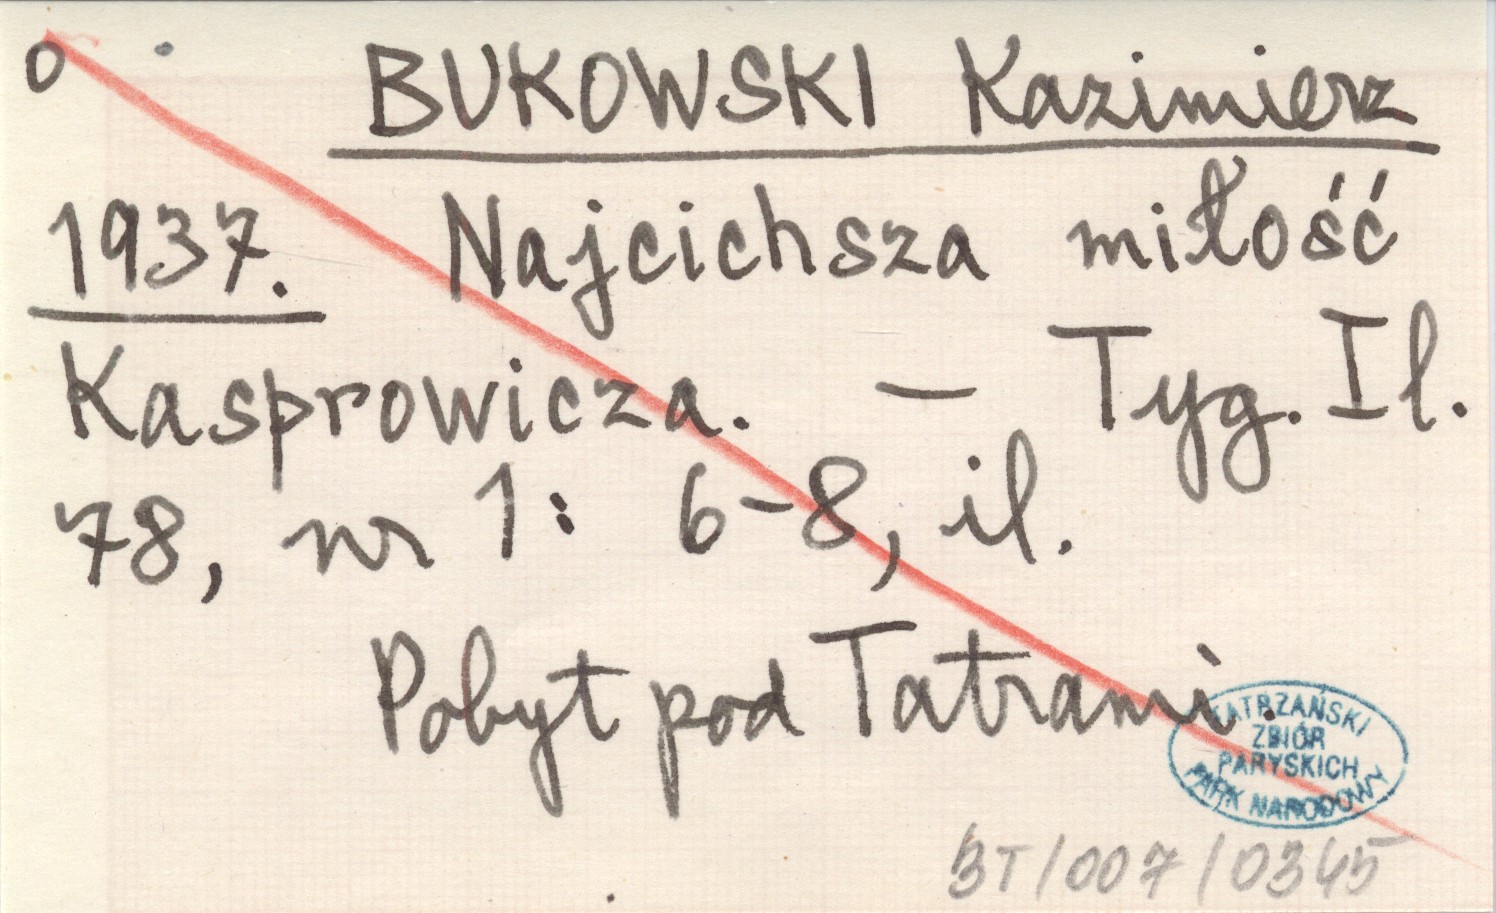 o BUKOWSKI Kazimierz
1937. Najcichsza miłość
Kasprowicza. – Tyg. Il.
78, nr 1: 6-8, il.
Pobyt pod Tatrami.
TATRZAŃSKI
ZBIÓR
PARYSKICH
PARK NARODOWY
BT/007/0345